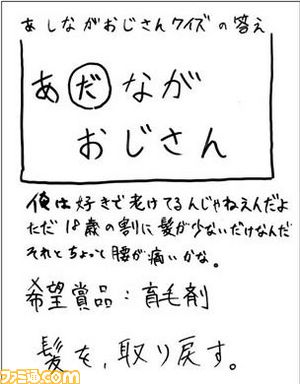 あしながおじさんクイズの答え
あだなが
おじさん
俺は好きで老けてるんじゃねえんだよ
ただ18歳の割に髪が少ないだけなんだ
それとちょっと腰が痛いかな。
希望賞品：育毛剤
髪を、取り戻す。
ファミ通.com